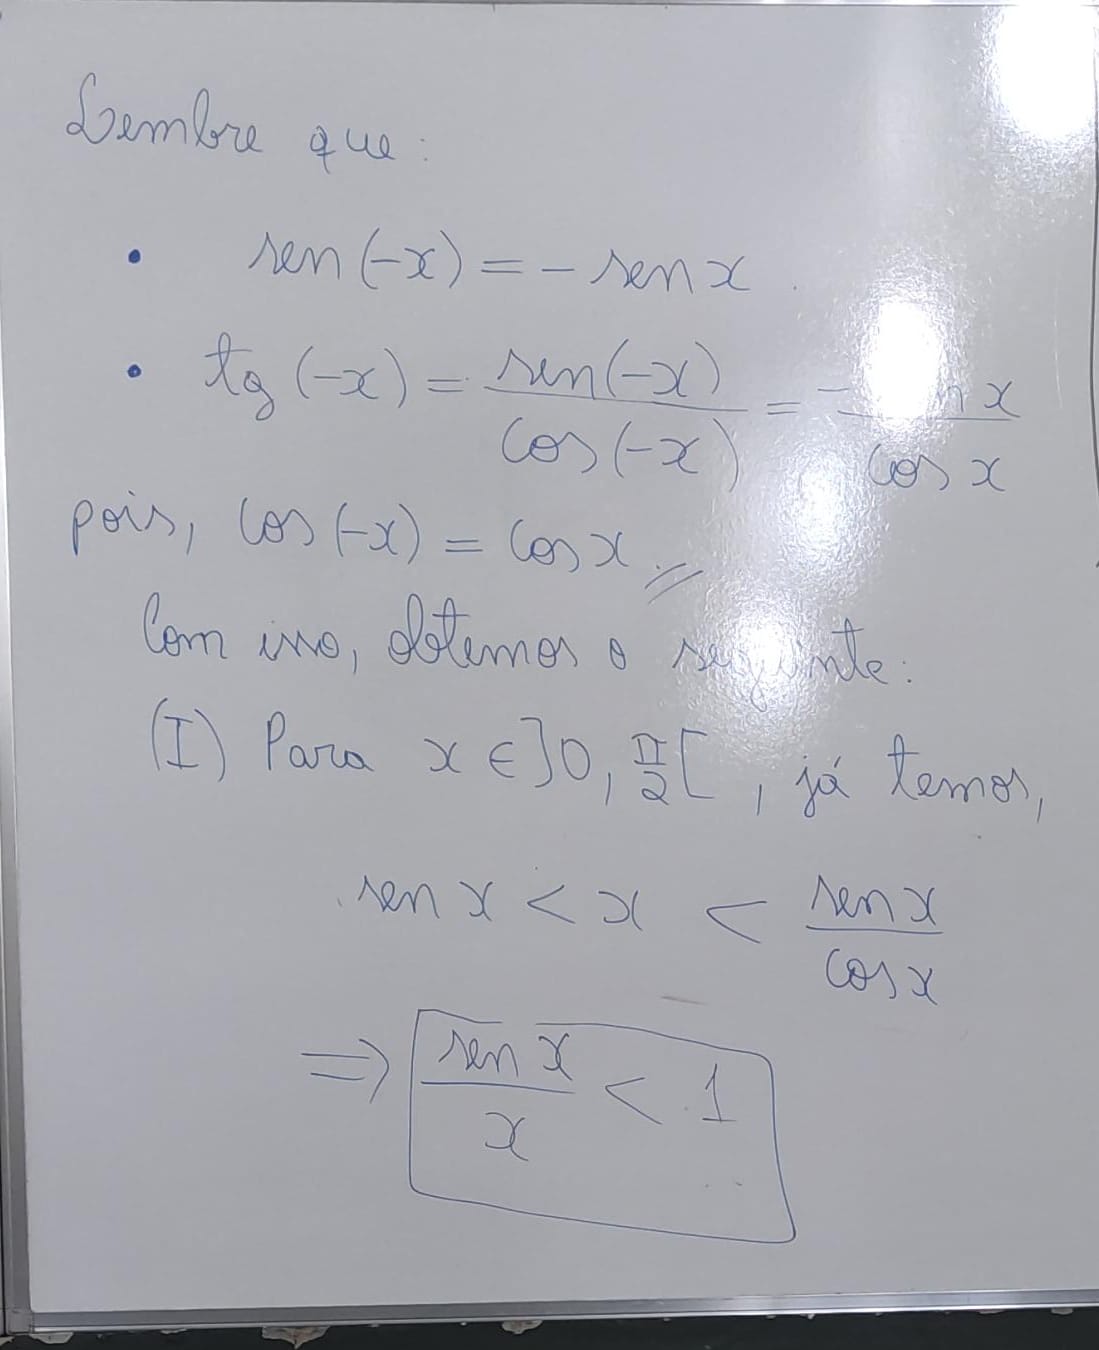 Lembre que:
• sen(-x) = - sen x.
• tg(-x) = sen(-x)/cos(-x) = - sen x/cos x
pois, cos(-x) = cos x //
Com isso, obtemos o seguinte:
(I) Para x ∈ ]0, π/2[, já temos,
sen x < x < sen x/cos x
⇒ sen x/x < 1